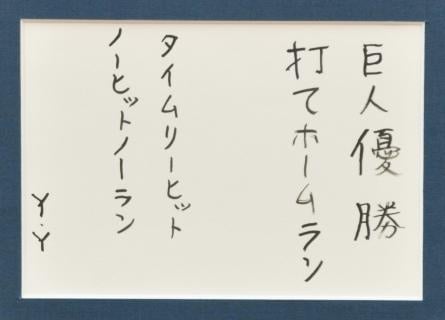 巨人優勝
打てホームラン
タイムリーヒット
ノーヒットノーラン
Y.Y